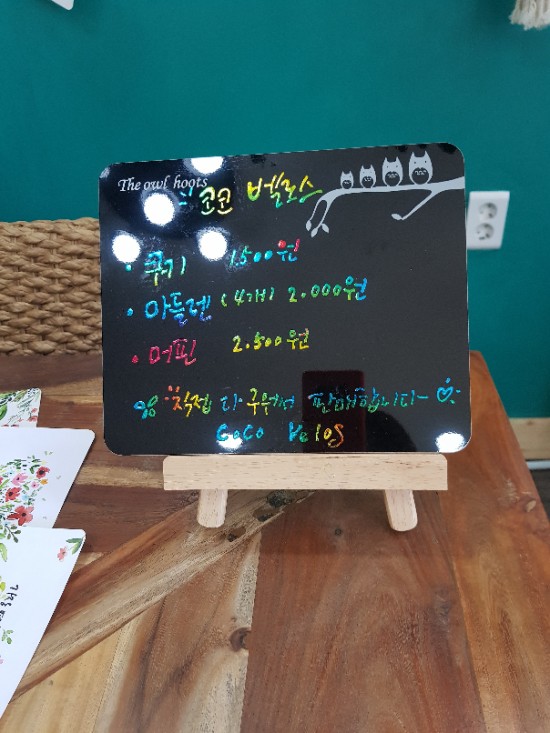 The owl hoots
코코 벨로스
• 쿠키 1.500원
• 마들렌 (4개) 2.000원
• 머핀 2.500원
직접 다 구워서 판매합니다~
CoCo Velos